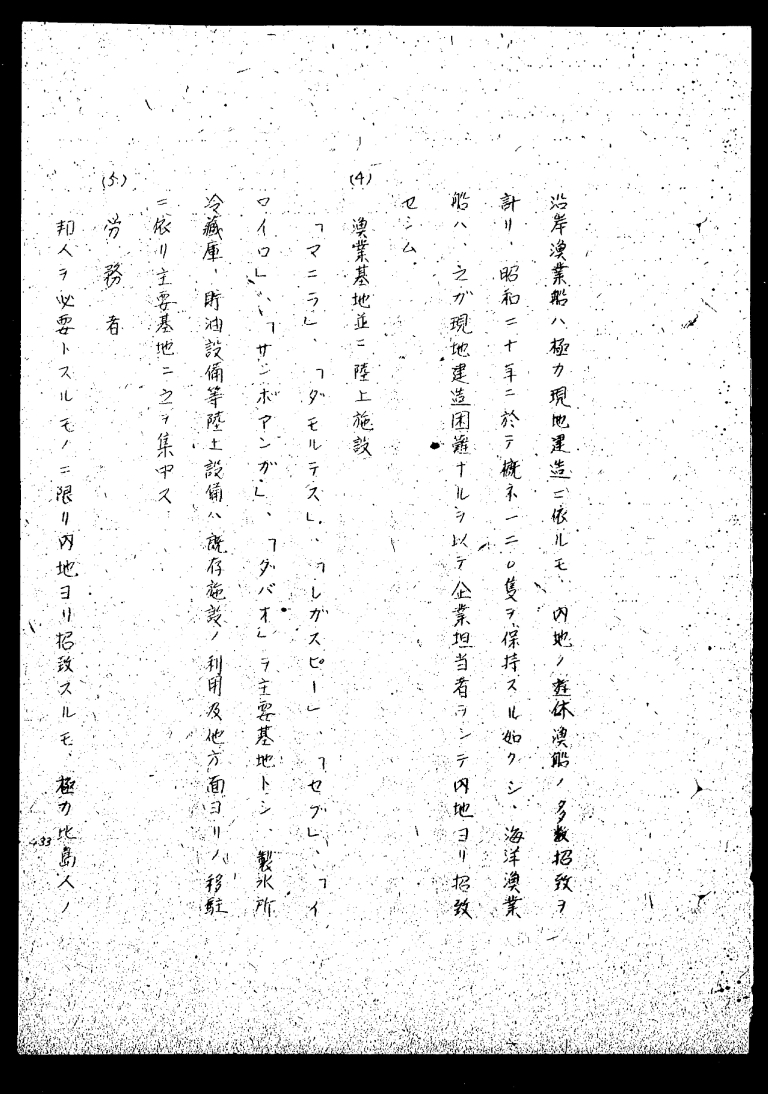 沿岸漁業船ハ極力現地建造ニ依ルモ、内地ノ遊休漁船ノ多数招致ヲ
計リ、昭和二十年ニ於テ概ネ一二〇隻ヲ保持スル如クシ、海洋漁業
船ハ、之ガ現地建造困難ナルヲ以テ企業担当者ヲシテ内地ヨリ招致
セシム
(4) 漁業基地並ニ陸上施設
「マニラ」、「ダモルテス」、「レガスピー」、「セブ」、「イ
ロイロ」、「サンボアンガ」、「ダバオ」ヲ主要基地トシ、製氷所
冷蔵庫、貯油設備等陸上設備ハ既存施設ノ利用及他方面ヨリノ移駐
ニ依リ主要基地ニ之ヲ集中ス
(5) 労務者
邦人ヲ必要トスルモノニ限リ内地ヨリ招致スルモ、極力比島人ノ
433